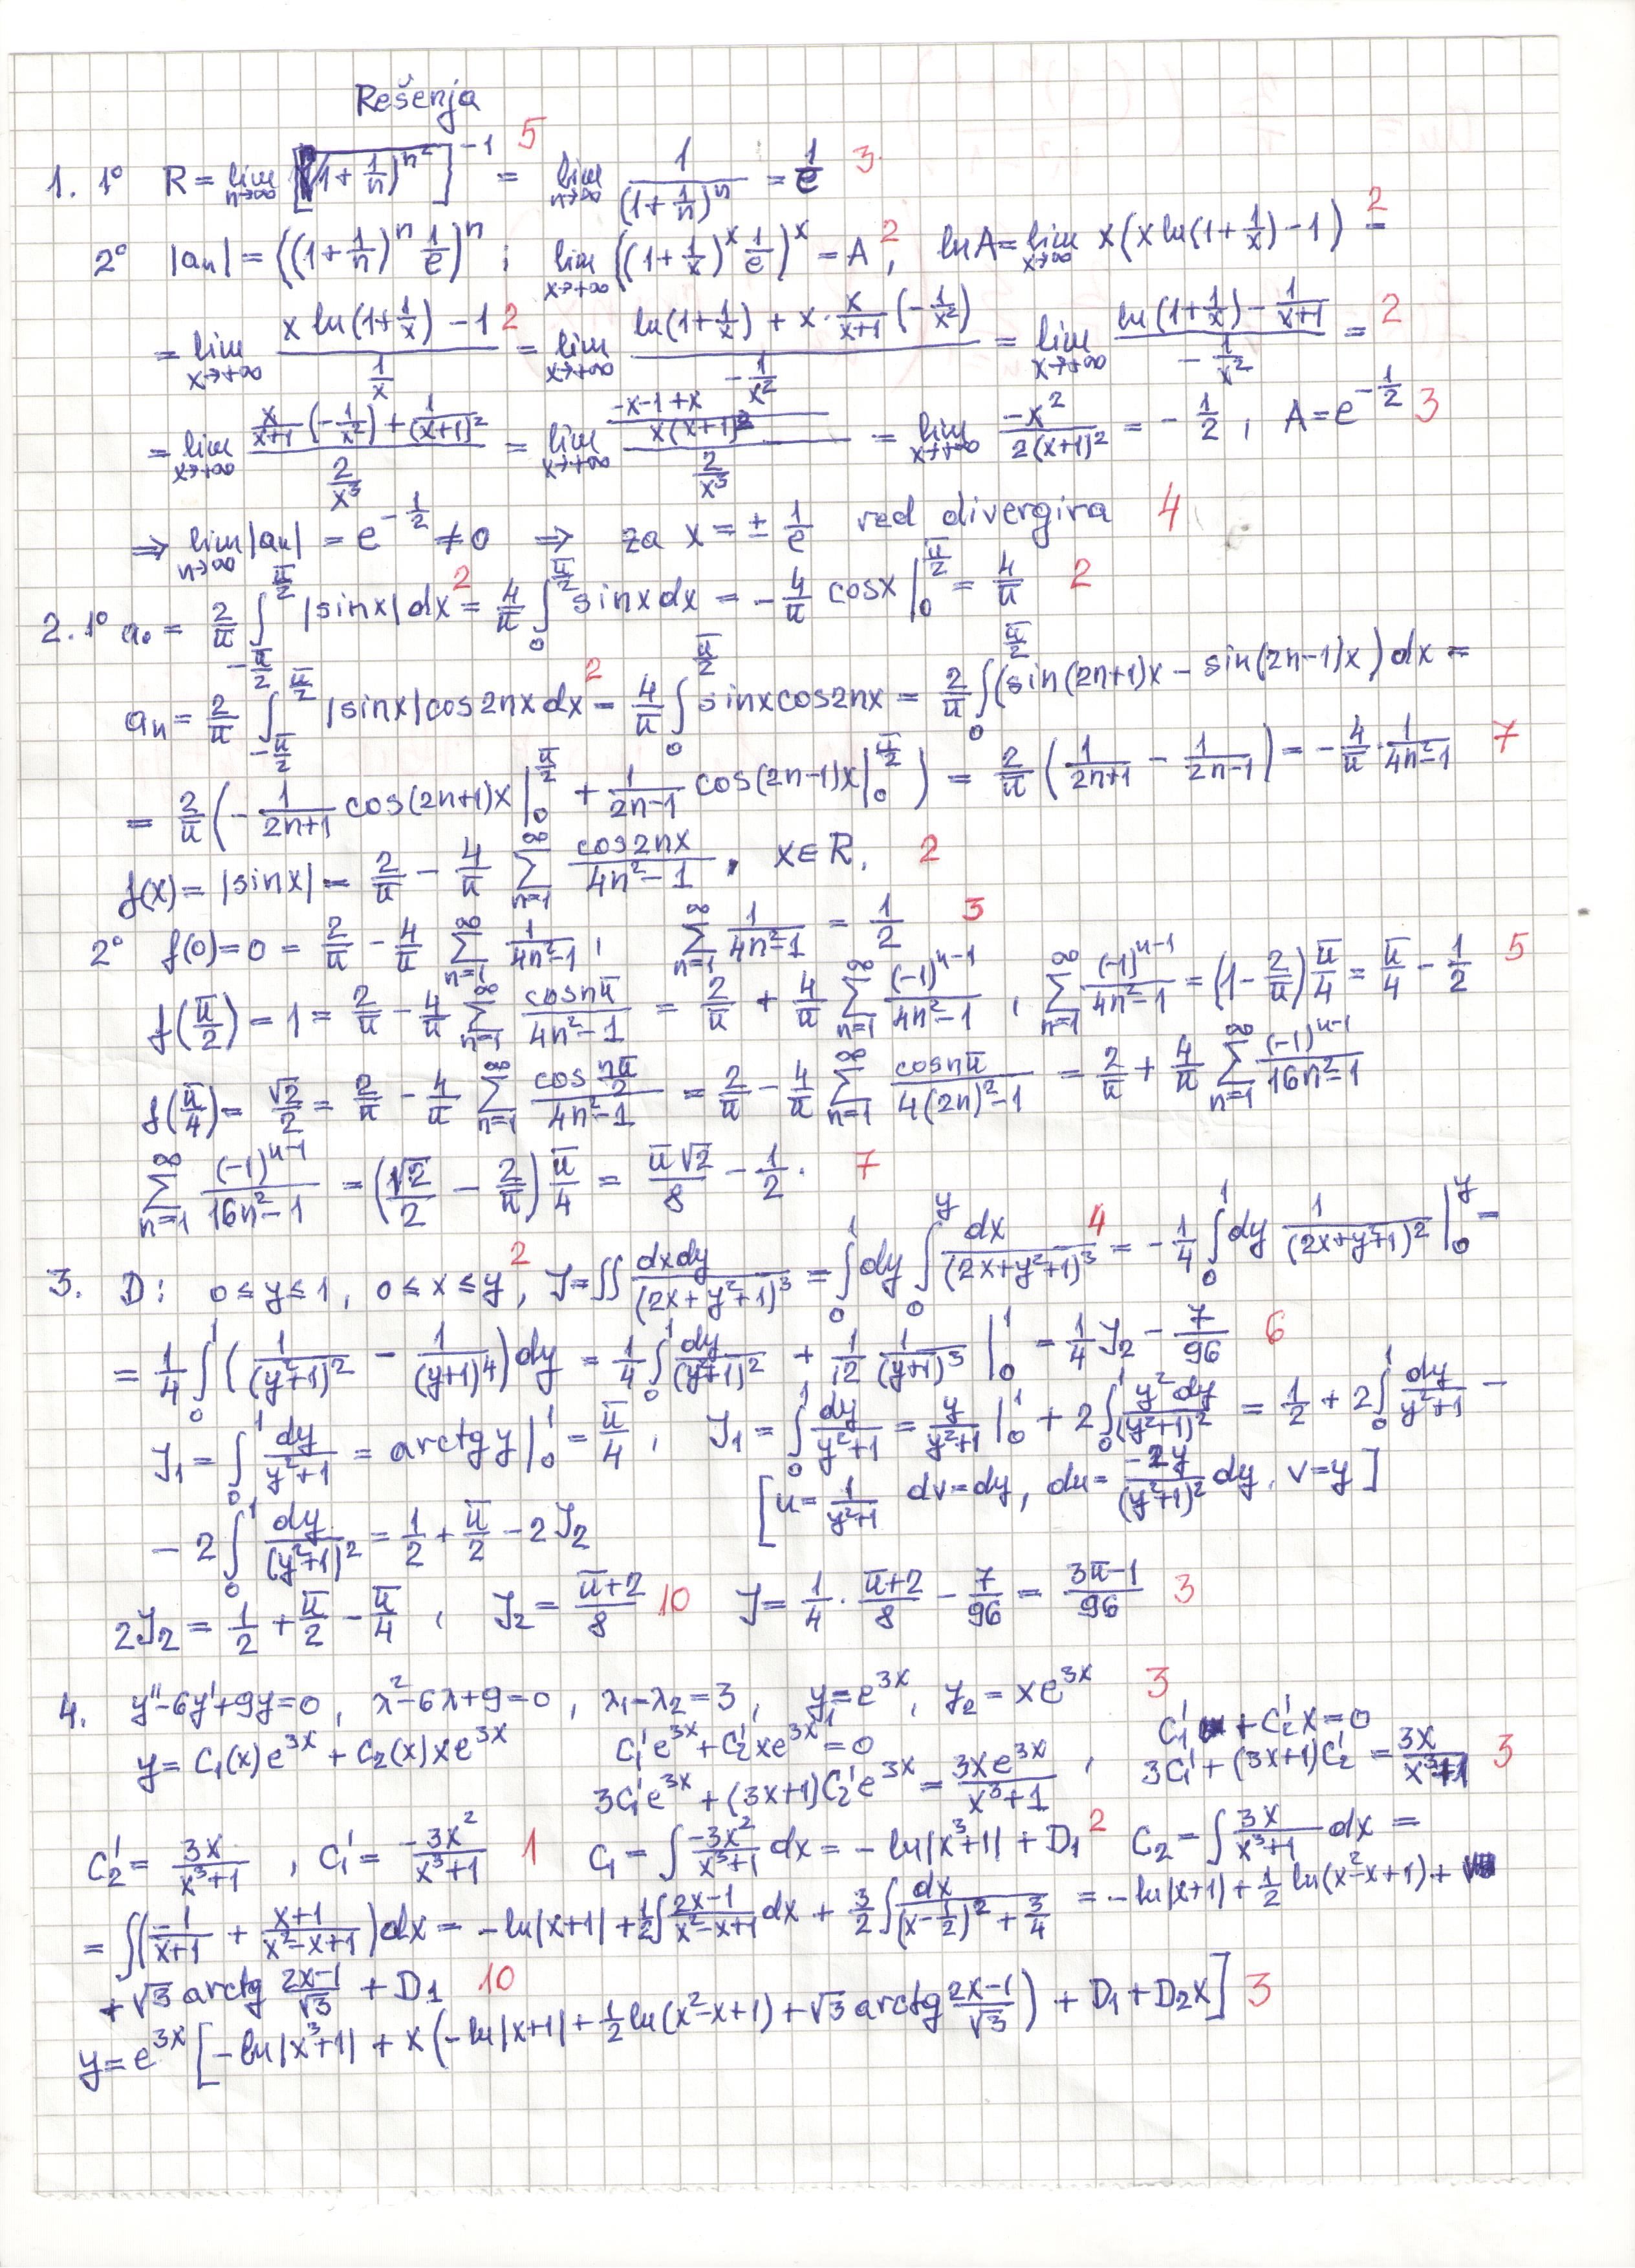 Rešenja
1. 1° R = lim_{n→∞} [√((1+1/n)^{n²})]^{-1} 5 = lim_{n→∞} 1/(1+1/n)^n = 1/e 3
2° |aₙ| = ((1+1/n)^n 1/e)^n ; lim_{x→+∞} ((1+1/x)^x 1/e)^x = A 2, ln A = lim_{x→∞} x(x ln(1+1/x) - 1) 2 =
= lim_{x→+∞} (x ln(1+1/x) - 1)/(1/x) 2 = lim_{x→+∞} (ln(1+1/x) + x · x/(x+1) (-1/x²))/(-1/x²) = lim_{x→+∞} (ln(1+1/x) - 1/(x+1))/(-1/x²) = 2
= lim_{x→+∞} (x/(x+1) (-1/x²) + 1/(x+1)²)/(2/x³) = lim_{x→+∞} ((-x-1+x)/(x(x+1)²))/(2/x³) = lim_{x→+∞} -x²/(2(x+1)²) = -1/2, A = e^{-1/2} 3
⇒ lim_{n→∞} |aₙ| = e^{-1/2} ≠ 0 ⇒ za x = ± 1/e red divergira 4
2. 1° a₀ = 2/π ∫_{-π/2}^{π/2} |sinx| dx 2 = 4/π ∫_0^{π/2} sinx dx = -4/π cosx |_0^{π/2} = 4/π 2
aₙ = 2/π ∫_{-π/2}^{π/2} |sinx| cos2nx dx 2 = 4/π ∫_0^{π/2} sinx cos2nx = 2/π ∫_0^{π/2} (sin(2n+1)x - sin(2n-1)x) dx =
= 2/π (-1/(2n+1) cos(2n+1)x |_0^{π/2} + 1/(2n-1) cos(2n-1)x |_0^{π/2}) = 2/π (1/(2n+1) - 1/(2n-1)) = -4/π · 1/(4n²-1) 7
f(x) = |sinx| = 2/π - 4/π ∑_{n=1}^∞ cos2nx/(4n²-1), x∈R. 2
2° f(0) = 0 = 2/π - 4/π ∑_{n=1}^∞ 1/(4n²-1), ∑_{n=1}^∞ 1/(4n²-1) = 1/2 3
f(π/2) = 1 = 2/π - 4/π ∑_{n=1}^∞ cosnπ/(4n²-1) = 2/π + 4/π ∑_{n=1}^∞ (-1)^{n-1}/(4n²-1), ∑_{n=1}^∞ (-1)^{n-1}/(4n²-1) = (1 - 2/π) π/4 = π/4 - 1/2 5
f(π/4) = √2/2 = 2/π - 4/π ∑_{n=1}^∞ cos(nπ/2)/(4n²-1) = 2/π - 4/π ∑_{n=1}^∞ cosnπ/(4(2n)²-1) = 2/π + 4/π ∑_{n=1}^∞ (-1)^{n-1}/(16n²-1)
∑_{n=1}^∞ (-1)^{n-1}/(16n²-1) = (√2/2 - 2/π) π/4 = π√2/8 - 1/2. 7
3. D: 0≤y≤1, 0≤x≤y 2, J = ∬ dxdy/(2x+y²+1)³ = ∫_0^1 dy ∫_0^y dx/(2x+y²+1)³ 4 = -1/4 ∫_0^1 dy 1/(2x+y²+1)² |_0^y =
= 1/4 ∫_0^1 (1/(y²+1)² - 1/(y+1)⁴) dy = 1/4 ∫_0^1 dy/(y²+1)² + 1/12 1/(y+1)³ |_0^1 = 1/4 J₂ - 7/96 6
J₁ = ∫_0^1 dy/(y²+1) = arctg y |_0^1 = π/4, J₁ = ∫_0^1 dy/(y²+1) = y/(y²+1) |_0^1 + 2∫_0^1 y²dy/(y²+1)² = 1/2 + 2∫_0^1 dy/(y²+1) -
- 2∫_0^1 dy/(y²+1)² = 1/2 + π/2 - 2J₂ [u = 1/(y²+1) dv = dy, du = -2y/(y²+1)² dy, v = y]
2J₂ = 1/2 + π/2 - π/4, J₂ = (π+2)/8 10 J = 1/4 · (π+2)/8 - 7/96 = (3π-1)/96 3
4. y''-6y'+9y=0, λ²-6λ+9=0, λ₁=λ₂=3, y₁=e^{3x}, y₂=xe^{3x} 3
y = C₁(x)e^{3x} + C₂(x)xe^{3x} C₁'e^{3x} + C₂'xe^{3x} = 0 C₁' + C₂'x = 0
3C₁'e^{3x} + (3x+1)C₂'e^{3x} = 3xe^{3x}/(x³+1), 3C₁' + (3x+1)C₂' = 3x/(x³+1) 3
C₂' = 3x/(x³+1), C₁' = -3x²/(x³+1) 1 C₁ = ∫ -3x²/(x³+1) dx = -ln|x³+1| + D₁ 2 C₂ = ∫ 3x/(x³+1) dx =
= ∫(-1/(x+1) + (x+1)/(x²-x+1)) dx = -ln|x+1| + 1/2 ∫ (2x-1)/(x²-x+1) dx + 3/2 ∫ dx/((x-1/2)² + 3/4) = -ln|x+1| + 1/2 ln(x²-x+1) +
+ √3 arctg (2x-1)/√3 + D₁ 10
y = e^{3x} [-ln|x³+1| + x(-ln|x+1| + 1/2 ln(x²-x+1) + √3 arctg (2x-1)/√3) + D₁ + D₂x] 3